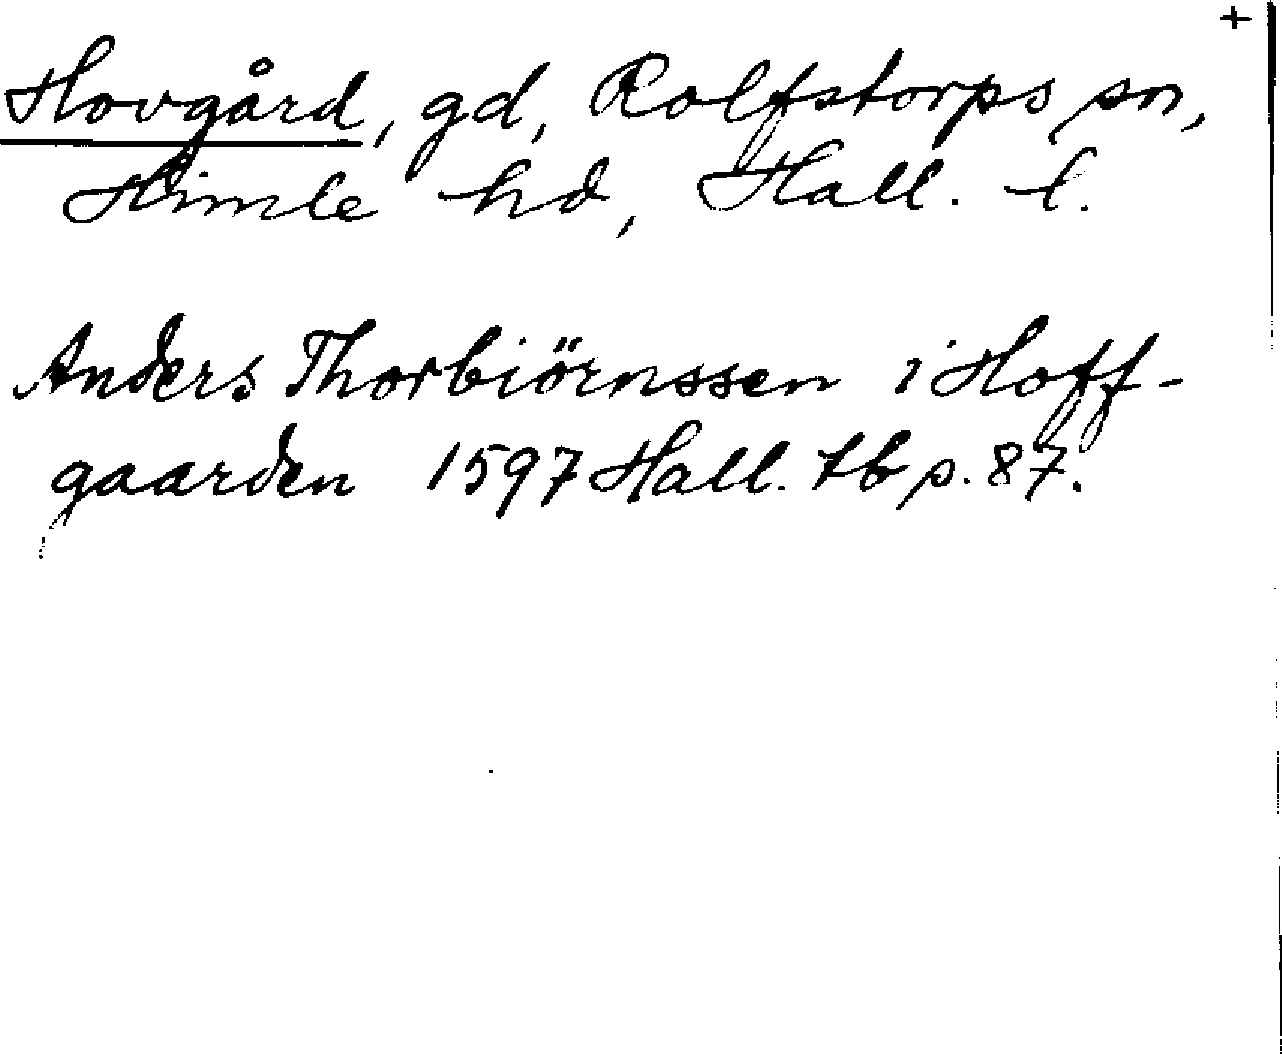 +
Hovgård, gd, Rolfstorps sn,
Himle hd, Hall. l.
Anders Thorbiörnssen i Hoff-
gaarden 1597 Hall. tb p. 87.